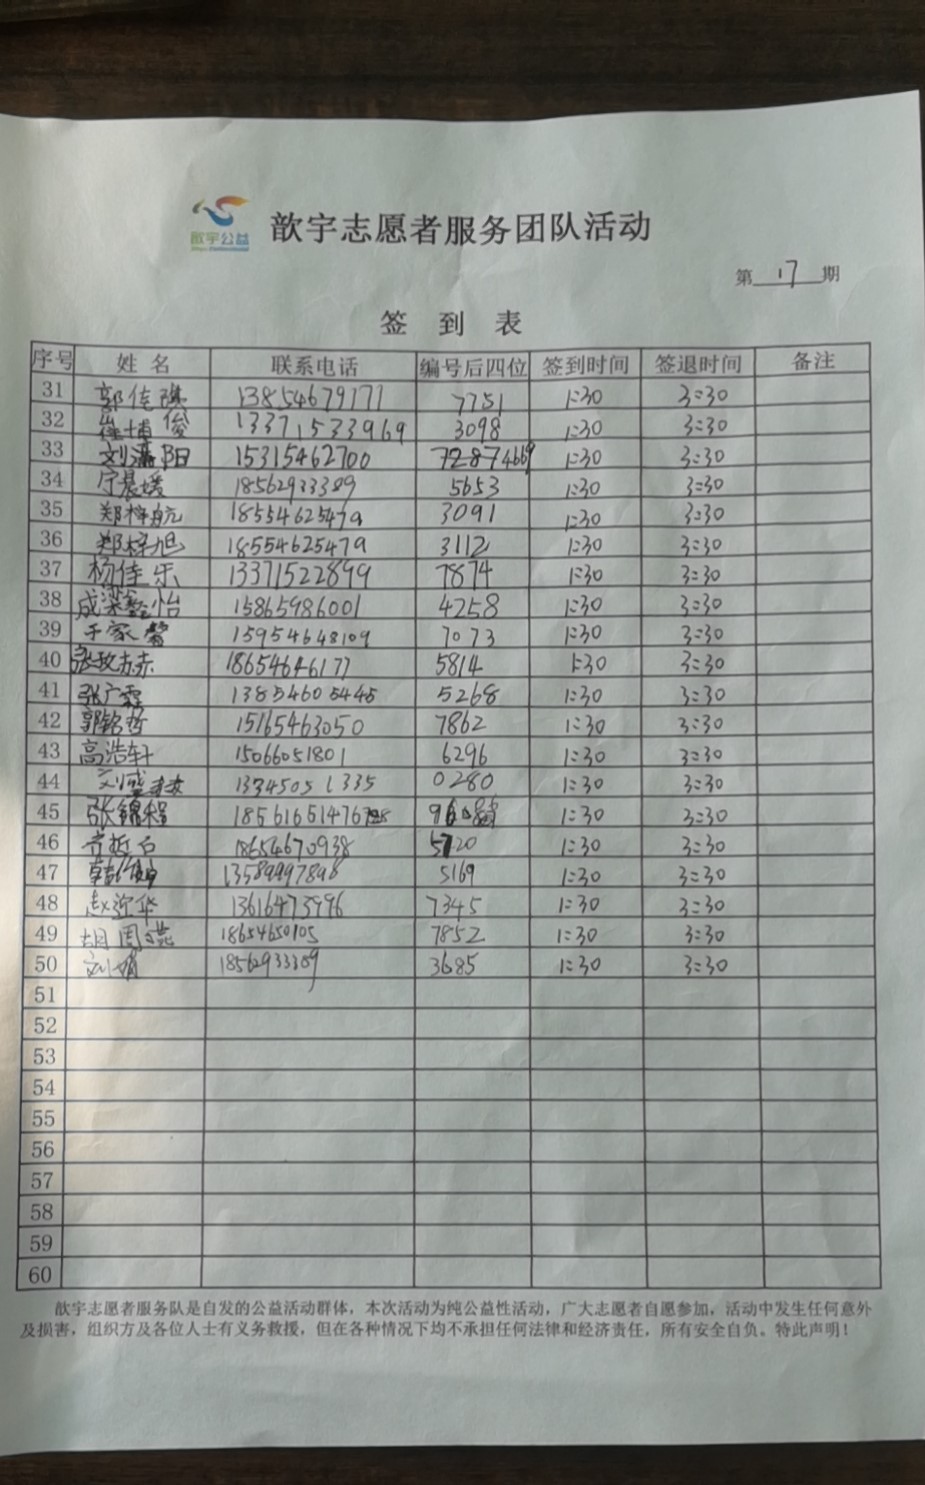 歆宇公益
歆宇志愿者服务团队活动
第 17 期
签 到 表
序号 姓 名 联系电话 编号后四位 签到时间 签退时间 备注
31 郭佳 13854679171 7751 1:30 3:30
32 崔博俊 13371533969 3098 1:30 3:30
33 刘 阳 15315462700 1:30 3:30
34 宁晨媛 18562933389 5653 1:30 3:30
35 郑梓航 18554625479 3091 1:30 3:30
36 郑梓旭 18554625479 3112 1:30 3:30
37 杨佳乐 13371522899 7874 1:30 3:30
38 成 怡 15865986001 4258 1:30 3:30
39 于家馨 15954648109 7073 1:30 3:30
40 张 18654646177 5814 1:30 3:30
41 张广霖 13854605445 5268 1:30 3:30
42 郭铭哲 15165463050 7862 1:30 3:30
43 高浩轩 15066051801 6296 1:30 3:30
44 刘盛 13345051335 0280 1:30 3:30
45 张锦程 1:30 3:30
46 18654670938 5720 1:30 3:30
47 韩 13589997898 5169 1:30 3:30
48 赵迎华 13616473996 7345 1:30 3:30
49 胡周燕 18654650105 7852 1:30 3:30
50 刘娟 18562933389 3685 1:30 3:30
51
52
53
54
55
56
57
58
59
60
歆宇志愿者服务队是自发的公益活动群体，本次活动为纯公益性活动，广大志愿者自愿参加，活动中发生任何意外
及损害，组织方及各位人士有义务救援，但在各种情况下均不承担任何法律和经济责任，所有安全自负。特此声明！